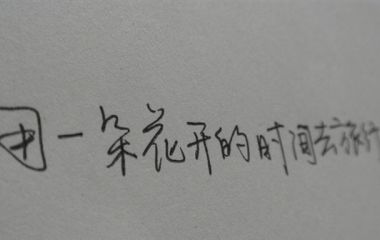 用一朵花开的时间去旅行